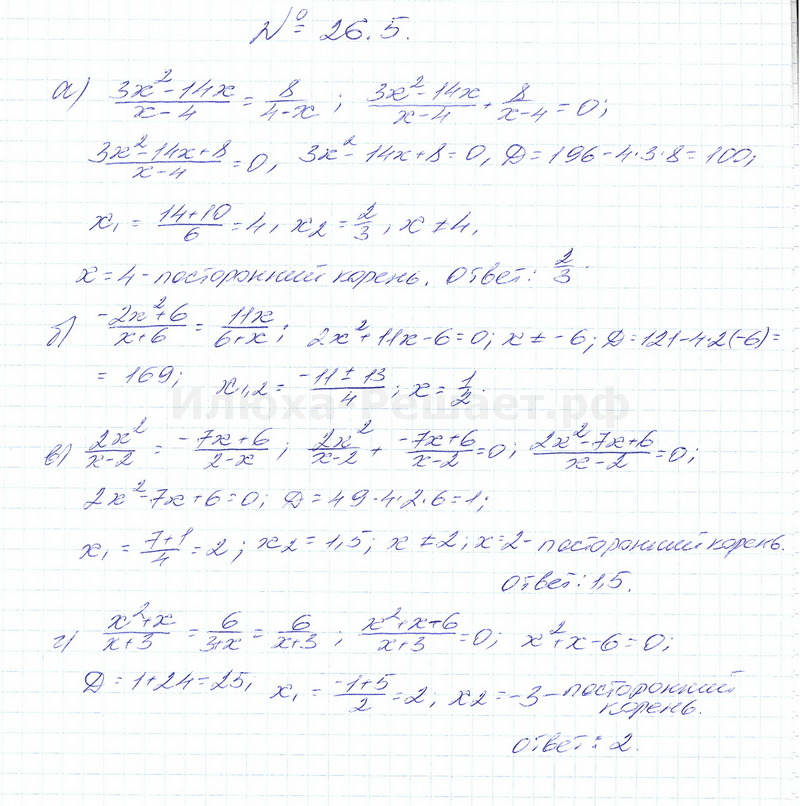 № 26.5.
а) (3x²-14x)/(x-4) = 8/(4-x); (3x²-14x)/(x-4) + 8/(x-4) = 0;
(3x²-14x+8)/(x-4) = 0, 3x²-14x+8=0, Д=196-4·3·8=100;
x₁ = (14+10)/6 = 4, x₂ = 2/3, x ≠ 4,
x=4 - посторонний корень. Ответ: 2/3.
б) (-2x²+6)/(x+6) = 11x/(6+x); 2x²+11x-6=0; x ≠ -6; Д=121-4·2(-6)=
= 169; x₁,₂ = (-11±13)/4; x = 1/2.
Илюха-Решает.рф
в) 2x²/(x-2) = (-7x+6)/(2-x); 2x²/(x-2) + (-7x+6)/(x-2) = 0; (2x²-7x+6)/(x-2) = 0;
2x²-7x+6=0; Д=49-4·2·6=1;
x₁ = (7+1)/4 = 2; x₂ = 1,5; x ≠ 2; x=2 - посторонний корень.
Ответ: 1,5.
г) (x²+x)/(x+3) = 6/(3+x) = 6/(x+3); (x²+x+6)/(x+3) = 0; x²+x-6=0;
Д=1+24=25, x₁ = (-1+5)/2 = 2; x₂ = -3 - посторонний
корень.
Ответ: 2.